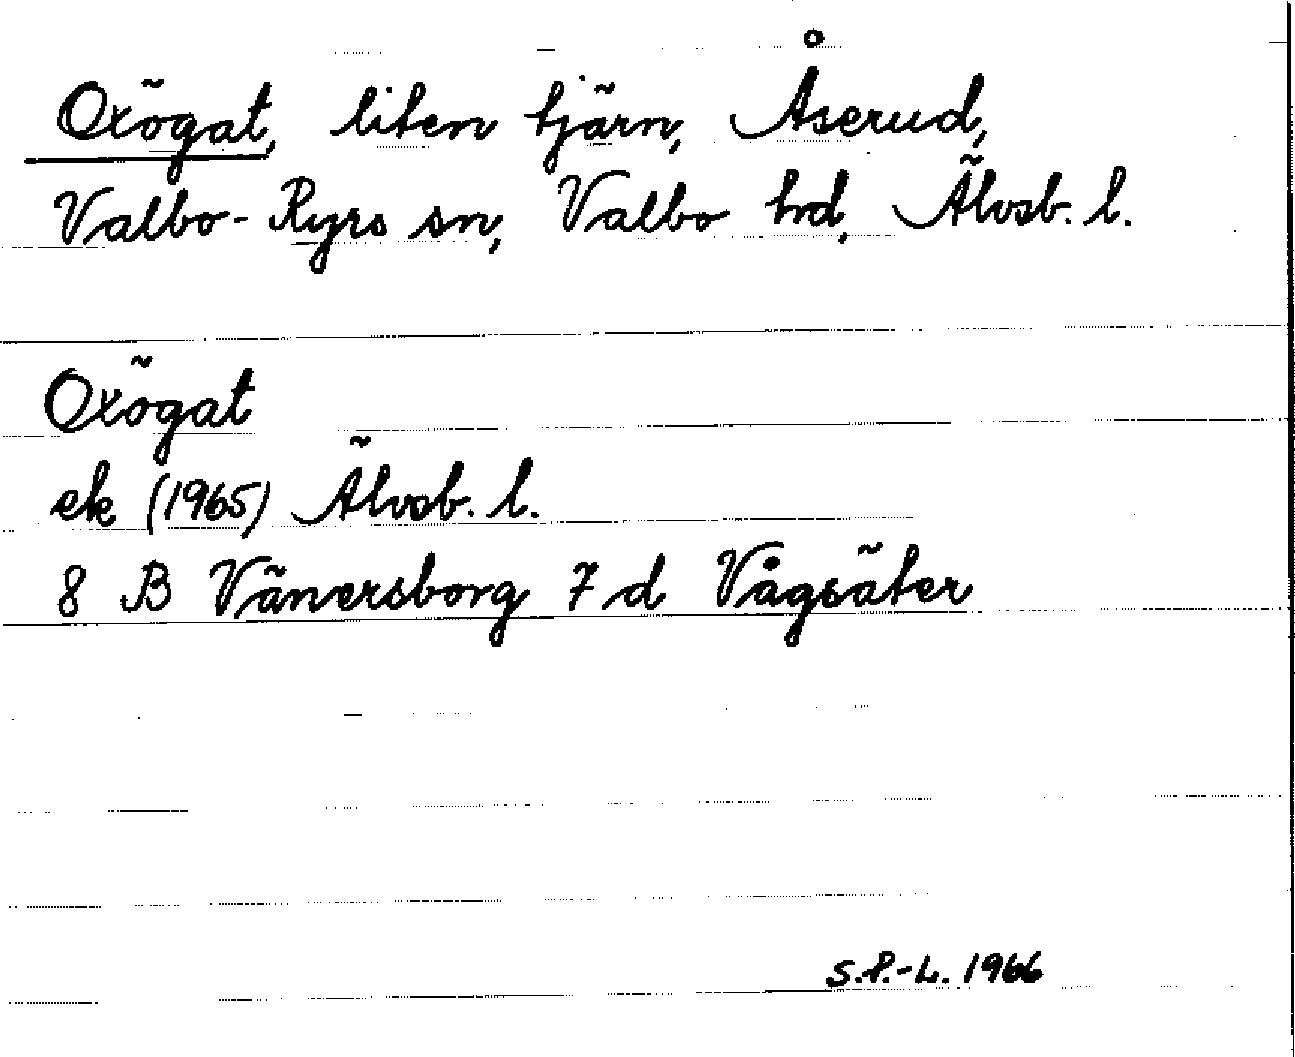 Oxögat, liten tjärn, Åserud,
Valbo-Ryrs sn, Valbo hd, Älvsb. l.
Oxögat
ek (1965) Älvsb. l.
8 B Vänersborg 7 d Vågsäter
S.P.-L. 1966